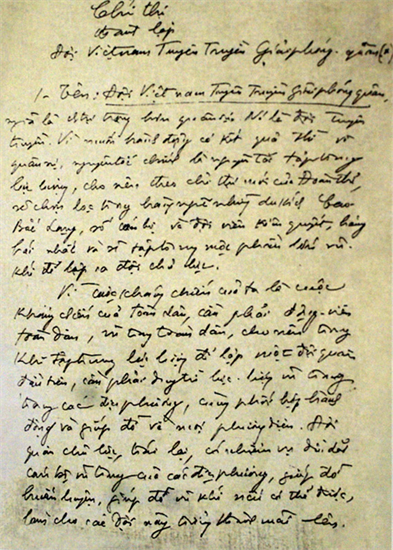 Chỉ thị
thành lập
Đội Việt nam Tuyên Truyền Giải phóng quân
1- Tên: Đội Việt nam Tuyên Truyền Giải phóng quân,
nghĩa là chính trị trọng hơn quân sự. Nó là đội tuyên
truyền. Vì muốn hành động có kết quả thì về
quân sự, nguyên tắc chính là nguyên tắc tập trung
lực lượng, cho nên theo chỉ thị mới của Đoàn thể,
sẽ chọn lọc trong hàng ngũ những du kích Cao
Bắc Lạng, số cán bộ và đội viên kiên quyết, hăng
hái nhất và sẽ tập trung một phần lớn vũ
khí để lập ra đội chủ lực.
Vì cuộc kháng chiến của ta là cuộc
kháng chiến của toàn dân, cần phải động viên
toàn dân, vũ trang toàn dân, cho nên trong
khi tập trung lực lượng để lập một đội quân
đầu tiên, cần phải duy trì lực lượng vũ trang
trong các địa phương, cùng phối hợp hành
động và giúp đỡ về mọi phương diện. Đội
quân chủ lực trái lại, có nhiệm vụ dìu dắt
cán bộ vũ trang của các địa phương, giúp đỡ
huấn luyện, giúp đỡ vũ khí nếu có thể được,
làm cho các đội này trưởng thành mãi lên.